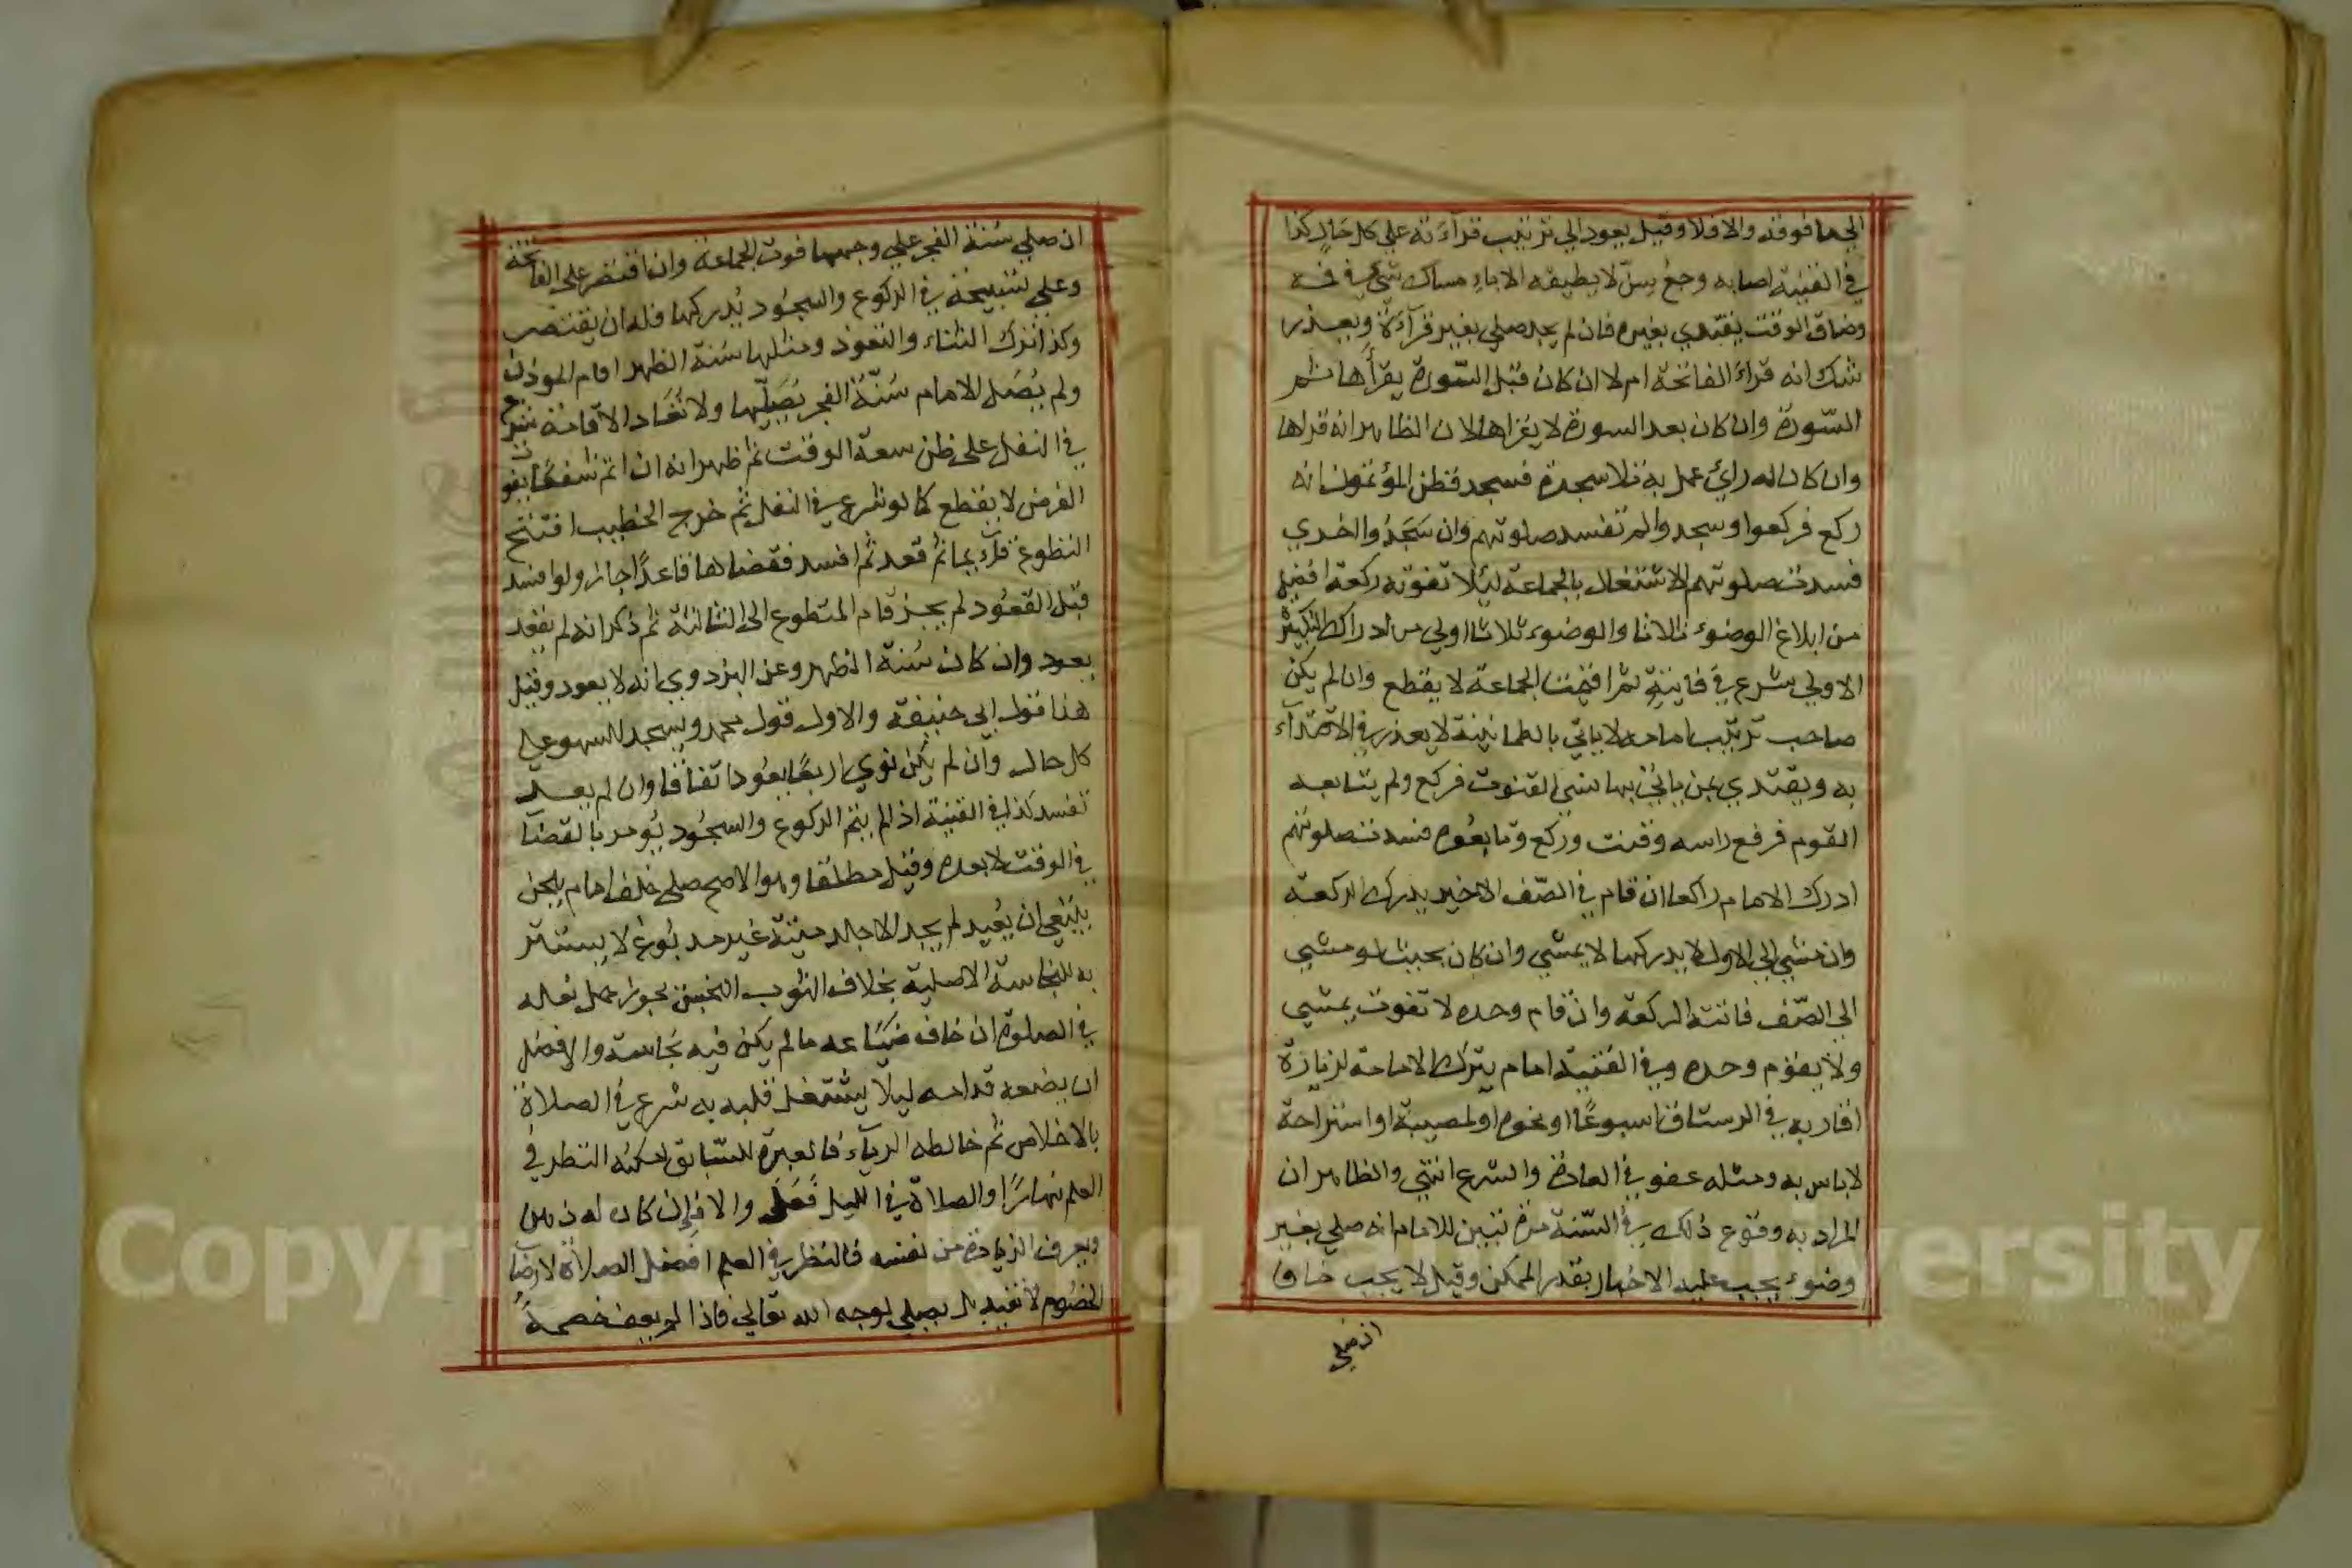 الي ما فوقه والا فلا وقيل يعود الي ترتيب قراءته علي كل حال كذا
في القنية اصابه وجع سن لا يطيقه الا بامساك شئ في فمه
وضاق الوقت يقتدي بغيره فان لم يجد صلي بغير قرآءة ويعذر
شك انه قراء الفاتحة ام لا ان كان قبل السورة يقرأها ثم
السورة وان كان بعد السورة لا يقراها لان الظاهر انه قراها
وان كان له راي عمل به تلا سجدة فسجد فظن المؤتمون انه
ركع فركعوا وسجدوا لم تفسد صلوتهم وان سجدوا اخري
فسدت صلوتهم الاشتغال بالجماعة ليلا تفوته ركعة افضل
من ابلاغ الوضوء ثلاثا والوضوء ثلاثا اولي من ادراك التكبيرة
الاولي شرع في فايتة ثم اقيمت الجماعة لا يقطع وان لم يكن
صاحب ترتيب امامه لا ياتي بالطمانينة لا يعذر في الاقتدآء
به ويقتدي بمن ياتي بها نسي القنوت فركع ولم يتابعه
القوم فرفع راسه وقنت وركع وتابعوه فسدت صلوتهم
ادرك الامام راكعا ان قام في الصف الاخير يدرك الركعة
وان مشي الي الاول لا يدركها لا يمشي وان كان بحيث لو مشي
الي الصف فاتته الركعة وان قام وحده لا تفوت يمشي
ولا يقوم وحده وفي القنية امام يترك الامامة لزيارة
اقاربه في الرستاق اسبوعًا او نحوه او لمصيبة او استراحة
لا باس به ومثله عفو في العادة والشرع انتهي والظاهر ان
المراد به وقوع ذلك في السنة مرة تبين للامام انه صلي بغير
وضوء يجب عليه الاخبار بقدر الممكن وقيل لا يجب خاف
ان صلي
ان صلي سنة الفجر علي وجهها فوت الجماعة وان اقتصر على الفاتحة
وعلي تسبيحة في الركوع والسجود يدركها فله ان يقتصر
وكذا ترك الثناء والتعوذ ومثلها سنة الظهر اقام الموذن
ولم يصل الامام سنة الفجر يصليها ولا تعاد الاقامة شرع
في النفل على ظن سعة الوقت ثم ظهر انه ان اتم شفعًا يفوت
الفرض لا يقطع كما لو شرع في النفل ثم خرج الخطيب افتتح
التطوع قآئما ثم قعد ثم افسد فقضاها قاعدًا جاز ولو افسد
قبل القعود لم يجز قام المتطوع الى الثالثة ثم ذكر انه لم يقعد
يعود وان كان سنة الظهر وعن البزدوي انه لا يعود وقيل
هذا قول ابي حنيفة والاول قول محمد ويسجد للسهو علي
كل حال وان لم يكن نوي اربعًا يعود اتفاقا وان لم يعد
تفسد كذا في القنية اذا لم يتم الركوع والسجود يومر بالقضآ
في الوقت لا بعده وقيل مطلقا وهو الاصح صلى خلف امام يلحن
ينبغي ان يعيد لم يجد الا جلد ميتة غير مدبوغ لا يستتر
به للنجاسة الاصلية بخلاف الثوب النجس يجوز حمل نعاله
في الصلوة ان خاف ضياعه ما لم يكن فيه نجاسة والافضل
ان يضعه قدامه ليلا يشتغل قلبه به شرع في الصلاة
بالاخلاص ثم خالطه الريآء فالعبرة للسابق امكنه النظر في
العلم نهارًا والصلاة في الليل فعل والا فان كان له ذهن
ويعرف الزيادة من نفسه فالنظر في العلم افضل الصلاة لارضآ
الخصوم لا تفيد بل يصلي لوجه الله تعالي فاذا لم يعف خصمه